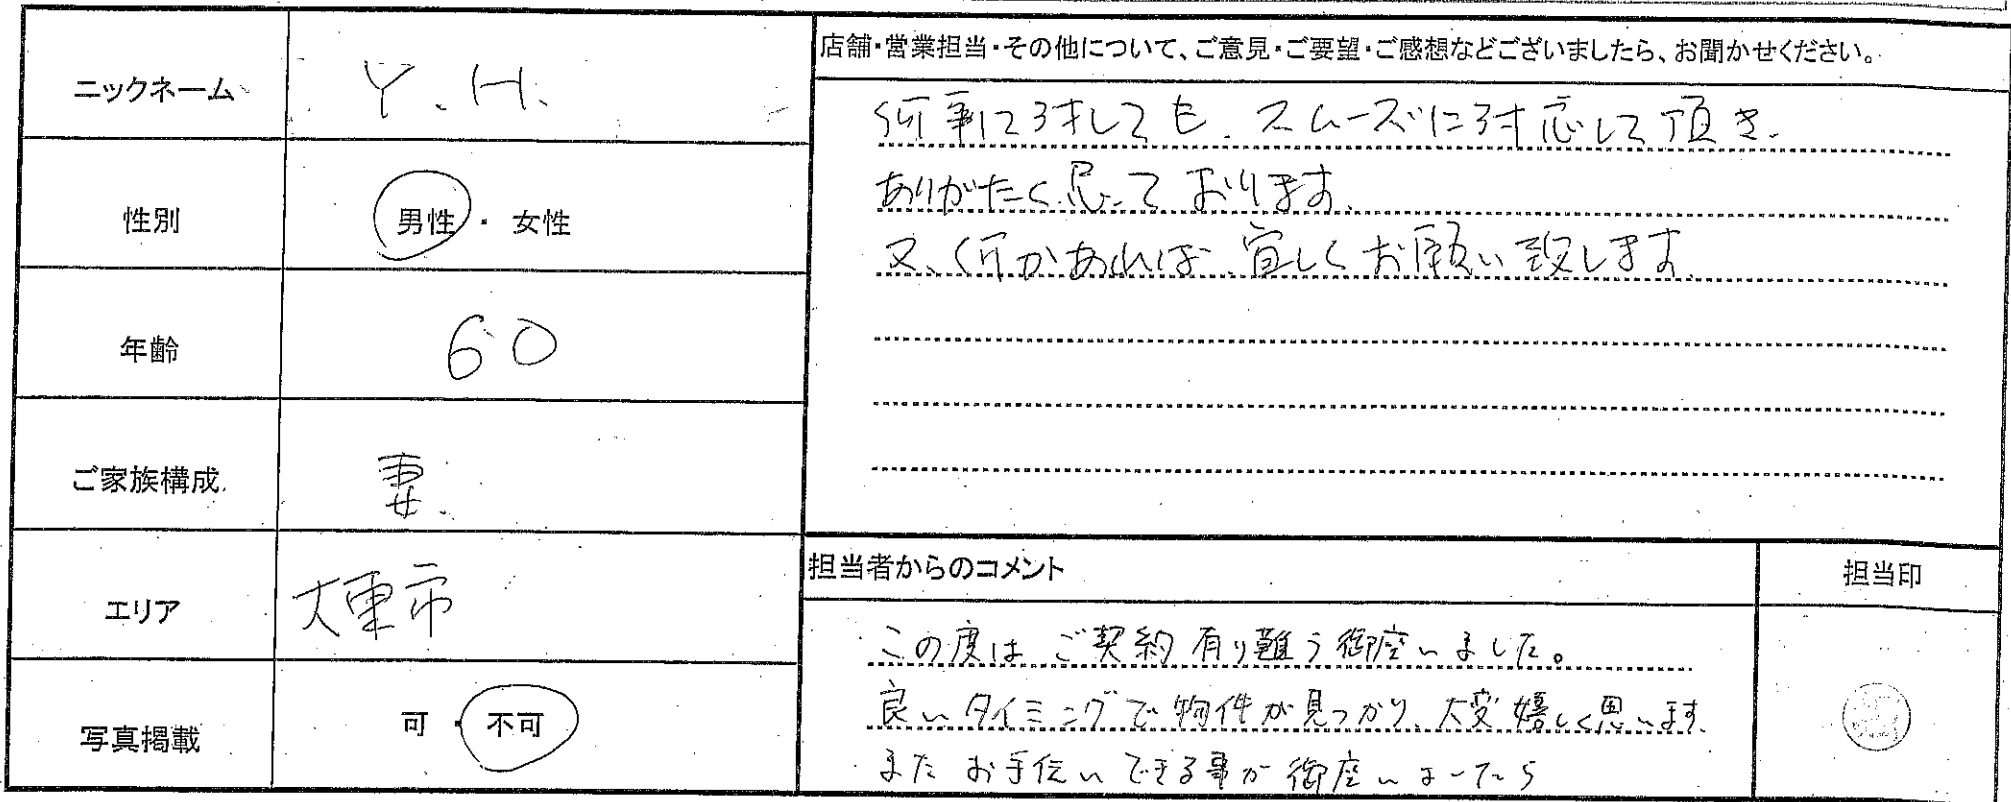 ニックネーム Y.H.
性別 男性・女性
年齢 60
ご家族構成 妻.
エリア 大東市
写真掲載 可・不可
店舗・営業担当・その他について、ご意見・ご要望・ご感想などございましたら、お聞かせください。
何事に対しても、スムーズに対応して頂き、
ありがたく思っております。
又、何かあれば、宜しくお願い致します。
担当者からのコメント
担当印
この度はご契約有り難う御座いました。
良いタイミングで物件が見つかり、大変嬉しく思います。
またお手伝いできる事が御座いましたら